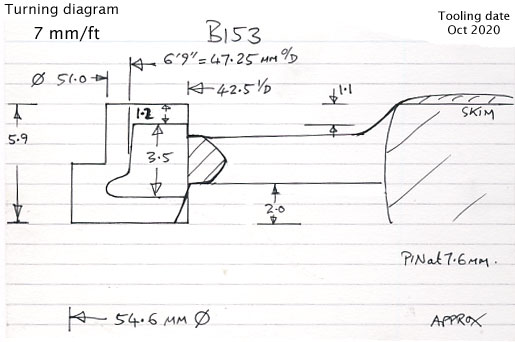 Turning diagram
7 mm/ft
B153
Tooling date
Oct 2020
6'9" = 47.25 MM O/D
Ø 51.0
42.5 I/D
1.1
1.2
SKIM
5.9
3.5
2.0
PIN at 7.6 MM.
54.6 MM Ø
APPROX